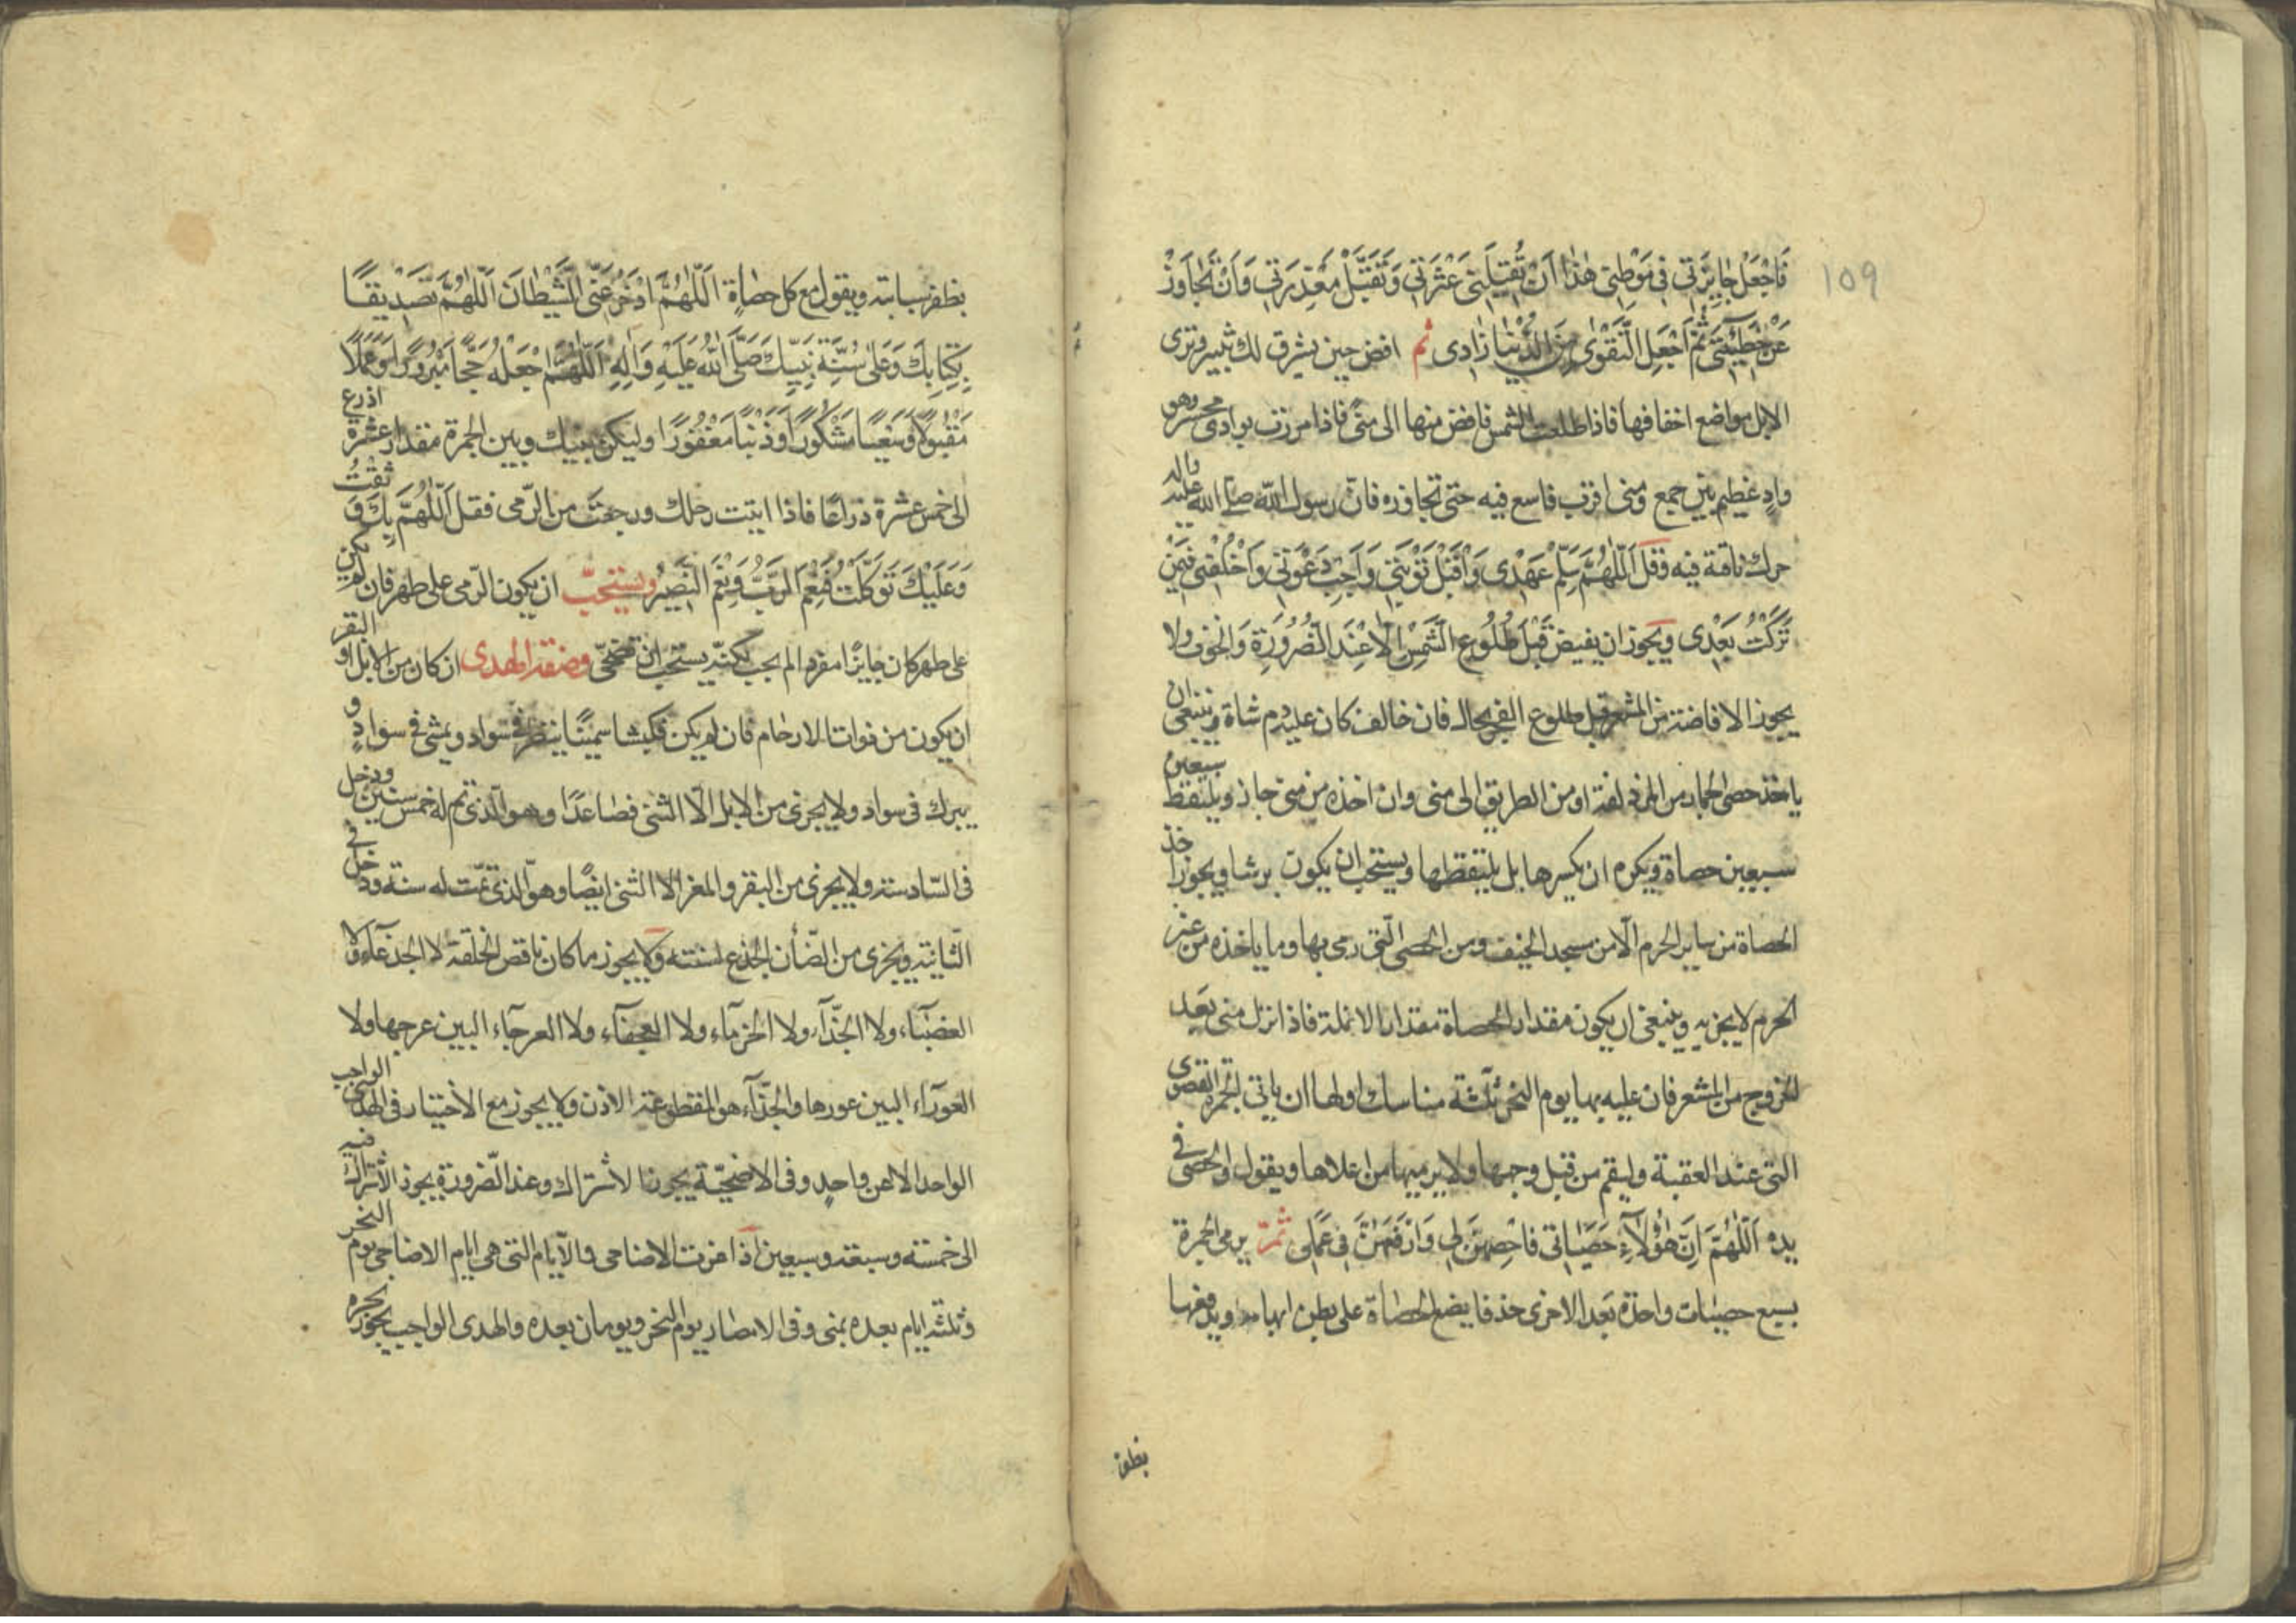 109
فَاجْعَلْ جَايِزَتي في مَوْطِني هٰذا اَنْ تُقيلَني عَثْرَتي وَتَقَبَّلْ مَعْذِرَتي وَاَنْ تَجاوَزْ
عَنْ خَطيئَتي ثُمَّ اجْعَلِ التَّقْوىٰ مِنَ الدُّنْيا زادى ثم افض حين يشرق لك ثبير وترى
الابل مواضع اخفافها فاذا طلعت الشمس فافض منها الى منًى فاذا مررت بوادى محسر وهو
وادٍ عظيم بين جمع ومنى اقرب فاسع فيه حتى تجاوزه فان رسول الله صلى الله عليه واله
حرك ناقته فيه وقل اَللّٰهُمَّ سَلِّمْ عَهْدى وَاقْبَلْ تَوْبَتي وَاَجِبْ دَعْوَتي وَاخْلُفْني فيمَنْ
تَرَكْتُ بَعْدى ويجوز ان يفيض قبل طلوع الشمس الا عند الضرورة والخوف ولا
يجوز الافاضة من المشعر قبل طلوع الفجر بحال فان خالف كان عليه دم شاة وينبغى ان
ياخذ حصى الجمار من المزدلفة او من الطريق الى منى وان اخذه من منى جاز ويلتقط سبعين
سبعين حصاة ويكره ان يكسرها بل يلتقطها ويستحب ان يكون برشا ويجوز اخذ
الحصاة من ساير الحرم الا من مسجد الخيف ومن الحصى التى رمى بها وما ياخذه من غير
الحرم لا يجزيه وينبغى ان يكون مقدار الحصاة مقدار الانملة فاذا نزل منى بعد
الخروج من المشعر فان عليه بها يوم النحر ثلثة مناسك اولها ان ياتى الجمرة القصوى
التى عند العقبة وليقم من قبل وجهها ولا يرميها من اعلاها ويقول والحصى فى
يده اَللّٰهُمَّ اِنَّ هٰؤُلآءِ حَصَياتى فَاحْصِهِنَّ لي وَارْفَعْهُنَّ في عَمَلى ثمّ يرمى الجمرة
بسبع حصيات واحدة بعد الاخرى خذفا يضع الحصاة على بطن ابهامه ويدفعها
بظفر
بظفر سبابته ويقول مع كل حصاةٍ اَللّٰهُمَّ ادْحَرْ عَنِّى الشَّيْطانَ اَللّٰهُمَّ تَصْديقًا
بِكِتابِكَ وَعَلىٰ سُنَّةِ نَبِيِّكَ صَلَّى اللهُ عَلَيْهِ وَالِهِ اَللّٰهُمَّ اجْعَلْهُ حَجًّا مَبْرُورًا وَعَمَلًا
مَقْبُولًا وَسَعْيًا مَشْكُورًا وَذَنْبًا مَغْفُورًا وليكن بينك وبين الجمرة مقدار عشرة اذرع
الى خمس عشرة ذراعًا فاذا اتيت رحلك ورجعت من الرّمى فقل اَللّٰهُمَّ بِكَ وَثِقْتُ
وَعَلَيْكَ تَوَكَّلْتُ فَنِعْمَ الرَّبُّ وَنِعْمَ النَّصيرُ ويستحبّ ان يكون الرّمى على طهر فان لم يكن
على طهر كان جايزًا ان يضحّى وصفة الهدى ان كان من الابل او البقر
ان يكون من ذوات الارحام فان لم يكن فكبشا سمينًا ينظر فى سواد ويمشى فى سوادٍ و
يبرك فى سواد ولا يجزى من الابل الّا الثنى فصاعدًا وهو الّذى تم له خمس سنين ودخل
فى السّادسة ولا يجزى من البقر والمعز الا الثنى ايضًا وهو الّذى تمت له سنة ودخل فى
الثّانية ويجزى من الضّأن الجذع لسنته ولا يجوز ما كان ناقص الخلقة لا الجذعآء ولا
العضبآء ولا الجذّآء ولا الخرمآء ولا العجفآء ولا العرجاء البين عرجها ولا
العورآء البين عورها والجذّآء هو المقطوعة الاذن ولا يجوز مع الاختيار فى الهدى الواجب
الواحد الا عن واحدٍ وفى الاضحيّة يجوزنا لاشتراك وعند الضّرورة يجوز الاشتراك فيه
الى خمسة وسبعة وسبعين اذا عزت الاضاحى والآيام التى هى ايام الاضاحى يوم النحر
وثلثة ايام بعده بمنى وفى الامصار يوم النحر ويومان بعده والهدى الواجب يجوز نحره